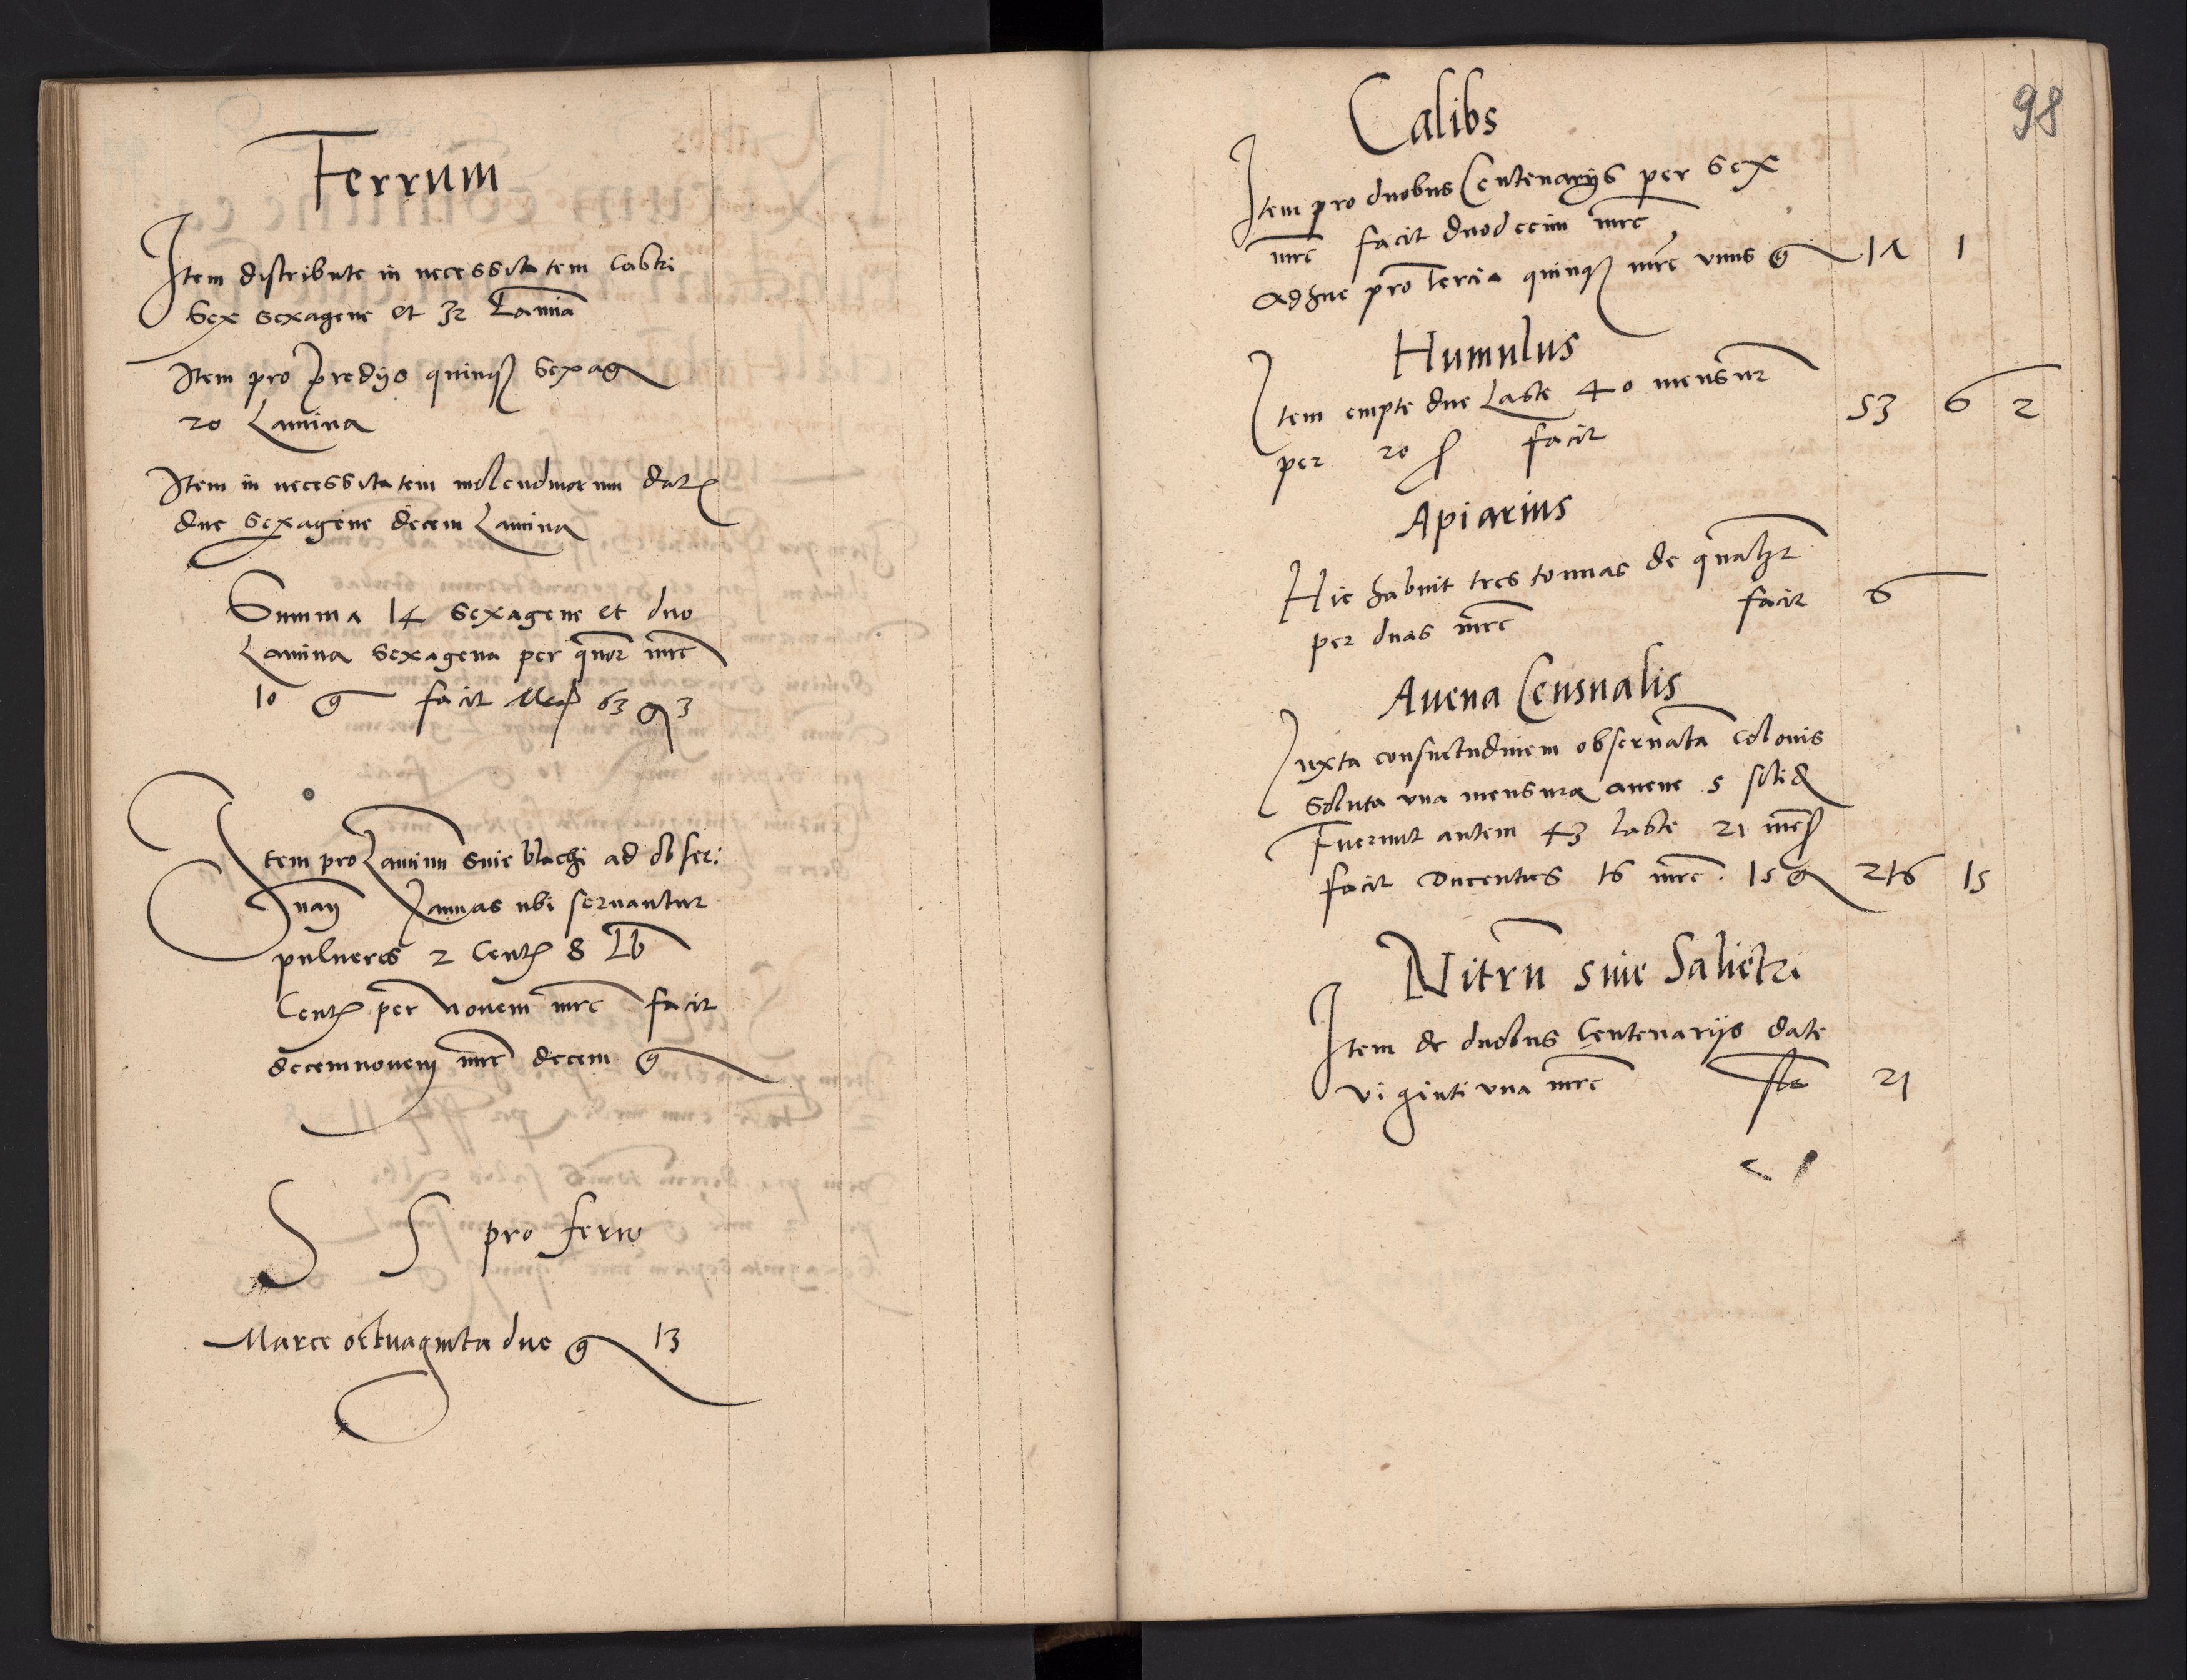 Ferrum
Item distribute in necessitatem Castri
Sex sexagene et 32 Lamia
Item pro predijs quinq sexag
20 Lamina
Item in necessitatem molendinorum dat
due sexagene decem Lamina
Summa 14 sexagene et duo
Lamina sexagena per quor mrc
10 g facit Mrc 63 g 3
Item pro Laminu siue blachi ad obser:
uan Januas ubi seruantur
pulueres 2 Cent 8 Lb
Cent per nouem mrc facit
decemnouem mrc decem g
S S pro ferro
Marce octuaginta due g 13
98
Calibs
Item pro duobus Centenarijs per sex
mrc facit duodecim mrc
adhuc pro tercia quinq mrc unus g 17 1
Humulus
Item empte due Laste 40 mensur
per 20 s facit 53 6 2
Apiarius
Hic habuit tres tonnas de
per duas mrc facit 6
Auena Censualis
Juxta consuetudinem obseruata colonis
soluta una mensura auene 5 solid
Fuerunt autem 43 laste 21 mes
facit Ducenties 16 mrc 15 g 216 15
Nitru siue Salietri
Item de duobus Centenarijs date
viginti una mrc 21